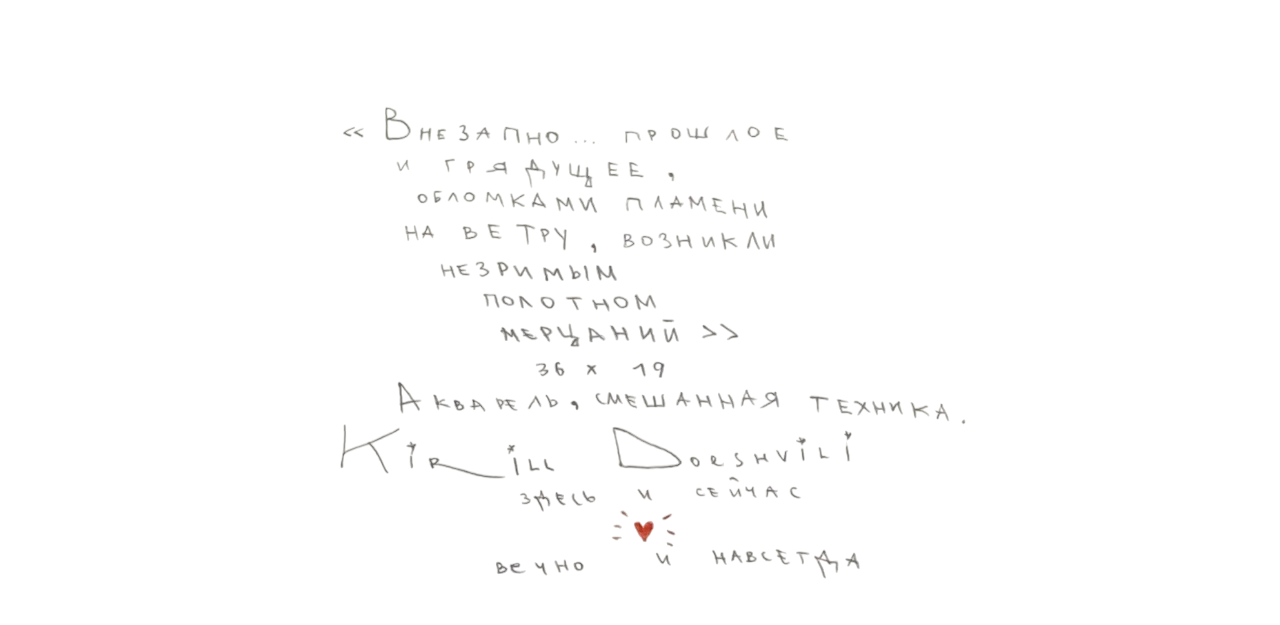 « Внезапно... прошлое
и грядущее,
обломками пламени
на ветру, возникли
незримым
полотном
мерцаний >>
36 x 19
Акварель, смешанная техника.
Kirill Doeshvili
здесь и сейчас
вечно и навсегда